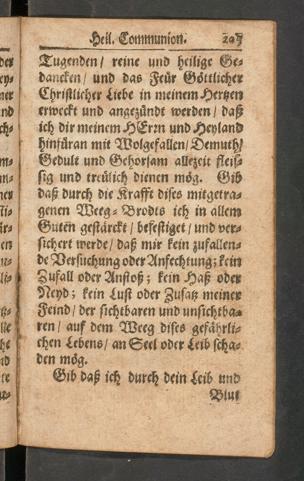 Heil. Communion. 207
Tugenden / reine und heilige Ge-
dancken / und das Feür Göttlicher
Christlicher Liebe in meinem Hertzen
erweckt und angezündt werden / daß
ich dir meinem HErrn und Heyland
hinfüran mit Wolgefallen / Demuth /
Gedult und Gehorsam allezeit fleis-
sig und treülich dienen mög. Gib
daß durch die Krafft dises mitgetra-
genen Weeg-Brodts ich in allem
Guten gestärckt / befestiget / und ver-
sichert werde / daß mir kein zufallen-
de Versuchung oder Anfechtung; kein
Zufall oder Anstoß; kein Haß oder
Neyd; kein Lust oder Zusatz meiner
Feind / der sichtbaren und unsichtba-
ren / auf dem Weeg dises gefährli-
chen Lebens / an Seel oder Leib scha-
den mög.
Gib daß ich durch dein Leib und
Blut